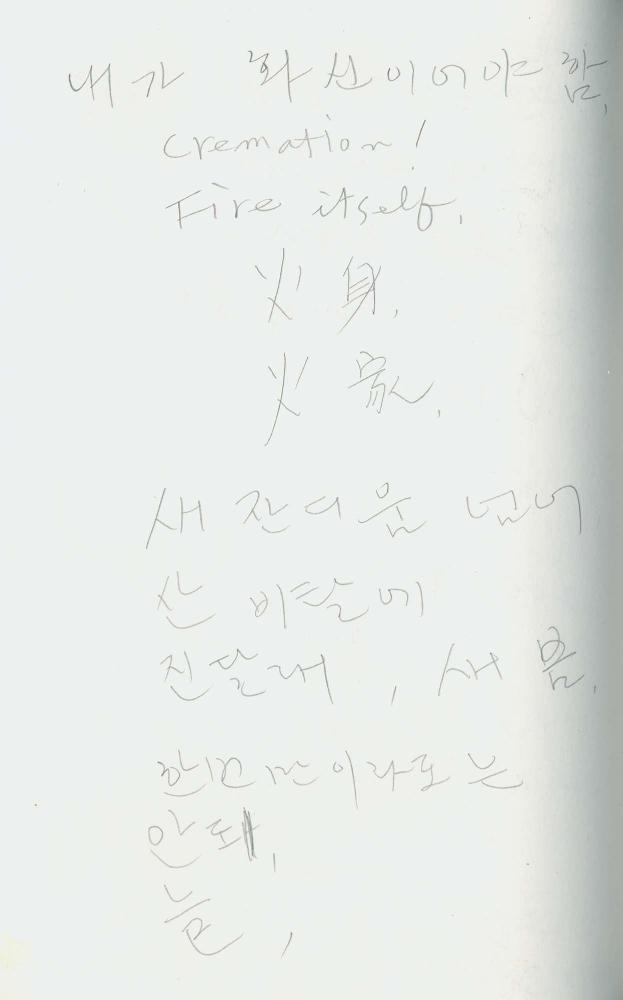 내가 화신이어야 함.
cremation!
Fire itself.
火身.
火家.
새 잔디움 넘어
산 비탈에
진달래, 새 봄.
한번만이라도는
안돼,
늘,